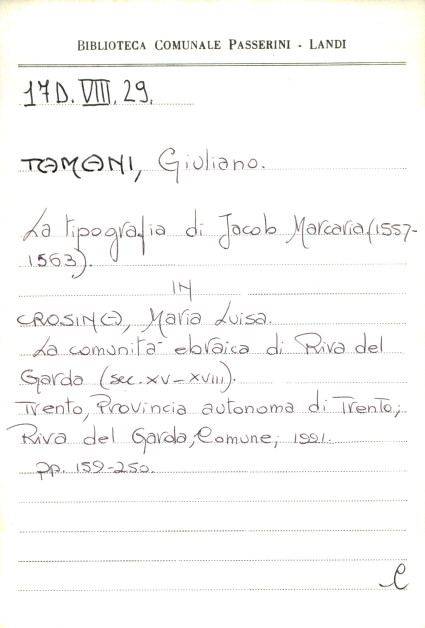 BIBLIOTECA COMUNALE PASSERINI - LANDI
17D.VIII.29.
TAMANI, Giuliano.
La tipografia di Jacob Marcaria (1557-
1563).
IN
CROSINA, Maria Luisa.
La comunità ebraica di Riva del
Garda (sec. XV-XVIII).
Trento, Provincia autonoma di Trento;
Riva del Garda, Comune, 1991.
pp. 159-250.